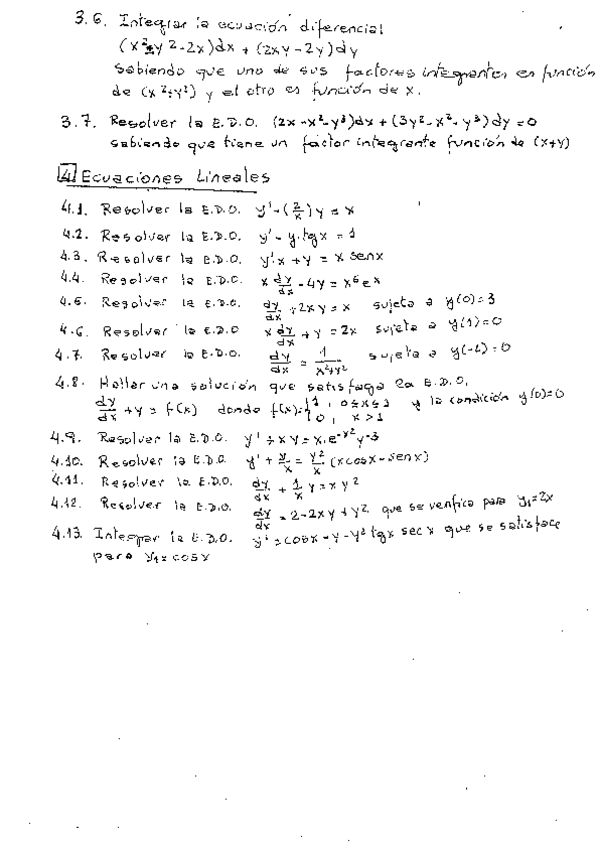 3.6. Integrar la ecuación diferencial
(x²+y²-2x)dx + (2xy-2y)dy
sabiendo que uno de sus factores integrantes es función
de (x²+y²) y el otro es función de x.
3.7. Resolver la E.D.O. (2x-x²-y³)dx + (3y²-x²-y³)dy=0
sabiendo que tiene un factor integrante función de (x+y)
4 Ecuaciones Lineales
4.1. Resolver la E.D.O. y'-(2/x)y = x
4.2. Resolver la E.D.O. y'-y.tgx = 1
4.3. Resolver la E.D.O. y'.x + y = x senx
4.4. Resolver la E.D.O. x dy/dx - 4y = x⁶eˣ
4.5. Resolver la E.D.O. dy/dx + 2xy = x sujeta a y(0)=3
4.6. Resolver la E.D.O x dy/dx + y = 2x sujeta a y(1)=0
4.7. Resolver la E.D.O. dy/dx = 1/(x²+y²) sujeta a y(-2)=0
4.8. Hallar una solución que satisfaga la E.D.O.
dy/dx + y = f(x) donde f(x)={1, 0≤x≤1 y la condición y(0)=0
0, x>1
4.9. Resolver la E.D.O. y' + xy = x.e^-x² y^-3
4.10. Resolver la E.D.O. y' + y/x = y²/x (xcosx-senx)
4.11. Resolver la E.D.O. dy/dx + 1/x y = xy²
4.12. Resolver la E.D.O. dy/dx = 2-2xy+y² que se verifica para y₁=2x
4.13. Integrar la E.D.O. y' = cosx-y-y² tgx secx que se satisface
para y₁=cosx